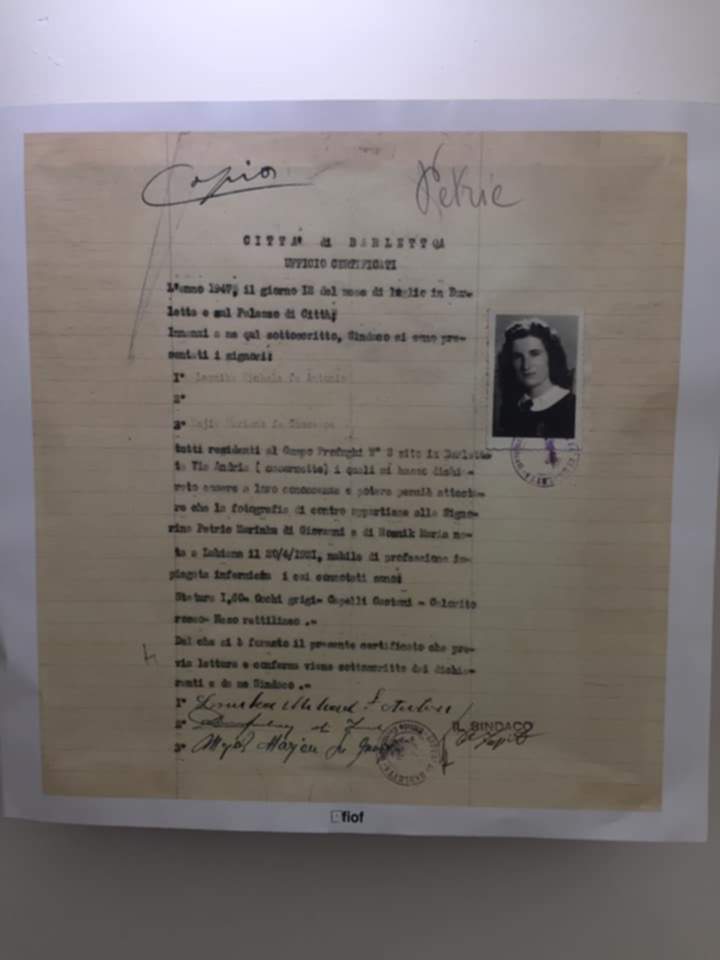 Copia
Petric
CITTA' di BARLETTA
UFFICIO CERTIFICATI
L'anno 1947, il giorno 12 del mese di luglio in Bar-
letta e sul Palazzo di Città;
Innanzi a me qui sottoscritto, Sindaco si sono pre-
sentati i signori:
1°
2°
3°
tutti residenti al Campo Profughi N° sito in Barletta
Via Andria ( ) i quali mi hanno dichia-
rato essere a loro conoscenza e potere perciò attesta-
re che la fotografia di contro appartiene alla Signo-
rina Petric Marinka di Giovanni e di Maria na-
ta a Lubiana il 20/4/1921, nubile di professione im-
piegata i cui connotati sono:
Statura 1,60- Occhi grigi- Capelli Castani - Colorito
roseo- Naso rettilineo .-
Del che si è formato il presente certificato che pre-
via lettura e conferma viene sottoscritto dai dichia-
ranti e da me Sindaco .-
1°
2°
3°
IL SINDACO
fiof